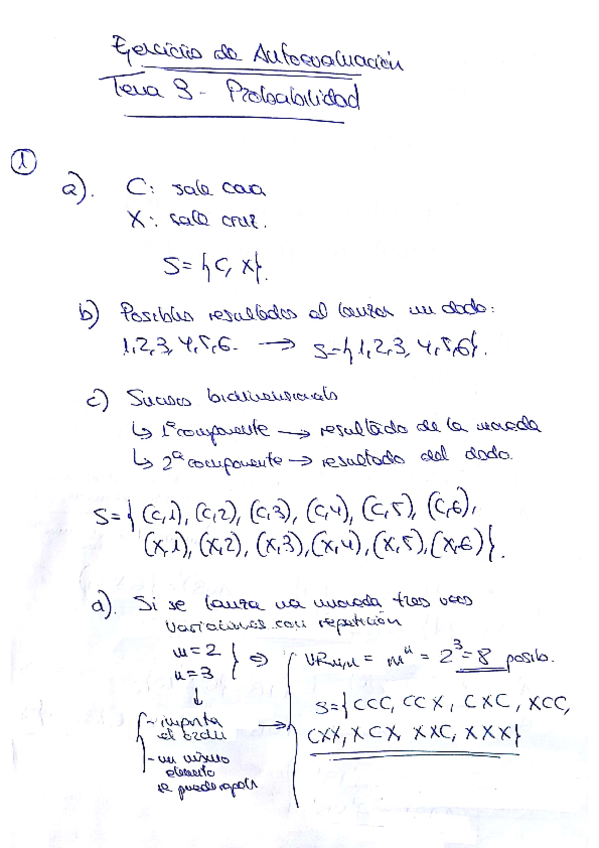 Ejercicio de Autoevaluación
Tema 3 - Probabilidad
1
a). C: sale cara
X: sale cruz.
S={C, X}.
b) Posibles resultados al lanzar un dado:
1,2,3,4,5,6. → S={1,2,3,4,5,6}.
c) Sucesos bidimensionales
↳ 1ª componente → resultado de la moneda
↳ 2ª componente → resultado del dado.
S={(C,1), (C,2), (C,3), (C,4), (C,5), (C,6),
(X,1), (X,2), (X,3), (X,4), (X,5), (X,6)}.
d). Si se lanza una moneda tres veces
Variaciones con repetición
m=2
n=3
} ⇒ { VRm,n = mⁿ = 2³=8 posib.
↓
S={CCC, CCX, CXC, XCC,
CXX, XCX, XXC, XXX}
- importa
el orden
- un mismo
elemento
se puede repetir